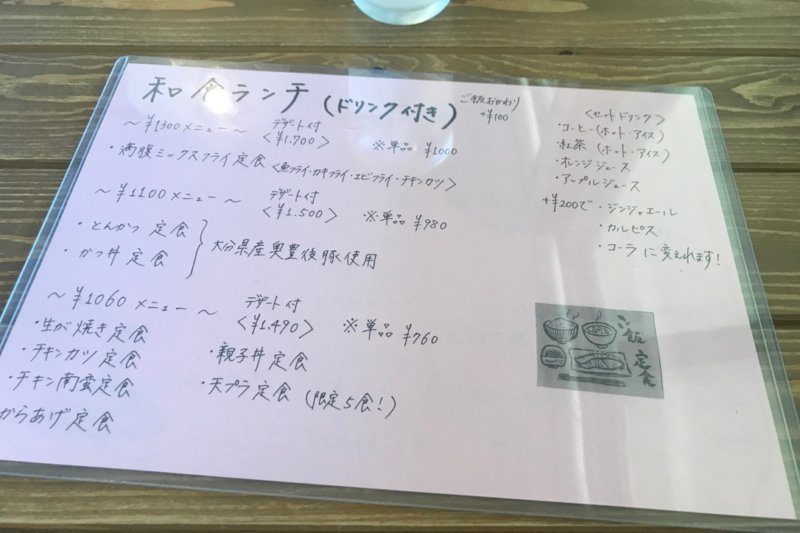 和食ランチ (ドリンク付き)
ご飯おかわり
+¥100
～¥1300メニュー～ デザート付 <¥1.700> ※単品 ¥1000
・満腹ミックスフライ定食 <魚フライ・カキフライ・エビフライ・チキンカツ>
～¥1100メニュー～ デザート付 <¥1.500> ※単品 ¥980
・とんかつ定食
・かつ丼定食
大分県産奥豊後豚使用
～¥1060メニュー～ デザート付 <¥1.490> ※単品 ¥760
・生が焼き定食
・チキンカツ定食
・チキン南蛮定食
からあげ定食
・親子丼定食
・天プラ定食 (限定5食!)
<セットドリンク>
・コーヒー(ホット・アイス)
・紅茶 (ホット・アイス)
・オレンジジュース
・アップルジュース
+¥200で・ジンジャエール
・カルピス
・コーラ に変えれます!
ご飯
定食